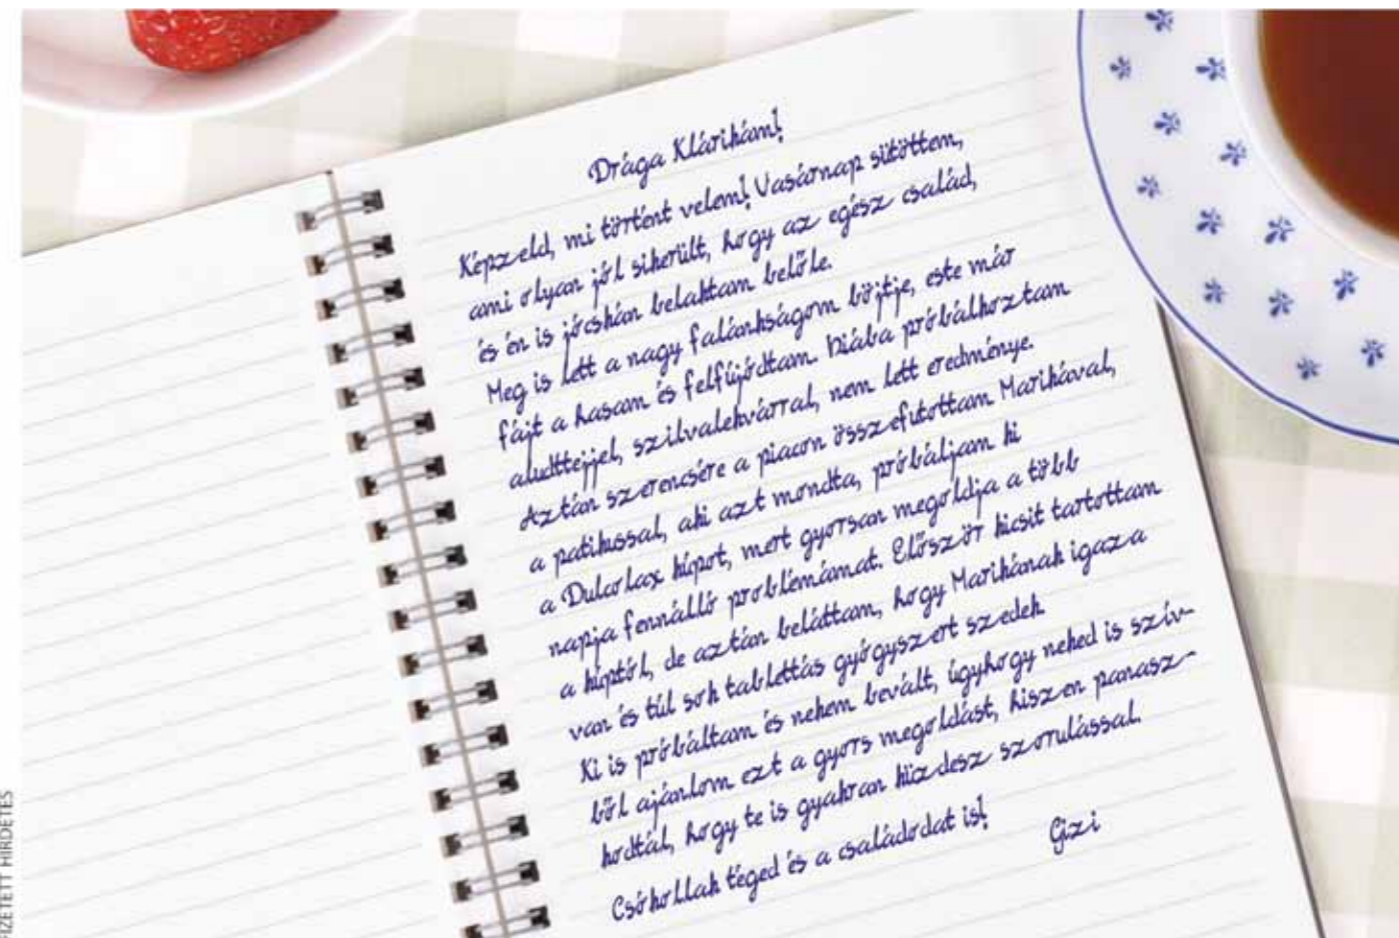 Drága Klárikám!
Képzeld, mi történt velem! Vasárnap sütöttem,
ami olyan jól sikerült, hogy az egész család,
és én is jócskán belaktam belőle.
Meg is lett a nagy falánkságom böjtje, este már
fájt a hasam és felfújódtam. Hiába próbálkoztam
aludttejjel, szilvalekvárral, nem lett eredménye.
Aztán szerencsére a piacon összefutottam Marikával,
a patikussal, aki azt mondta, próbáljam ki
a Dulcolax kúpot, mert gyorsan megoldja a több
napja fennálló problémámat. Először kicsit tartottam
a kúptól, de aztán beláttam, hogy Marikának igaza
van és túl sok tablettás gyógyszert szedek.
Ki is próbáltam és nekem bevált, úgyhogy neked is szív-
ből ajánlom ezt a gyors megoldást, hiszen panasz-
kodtál, hogy te is gyakran küzdesz szorulással.
Csókollak téged és a családodat is!
Gizi
FIZETETT HIRDETÉS